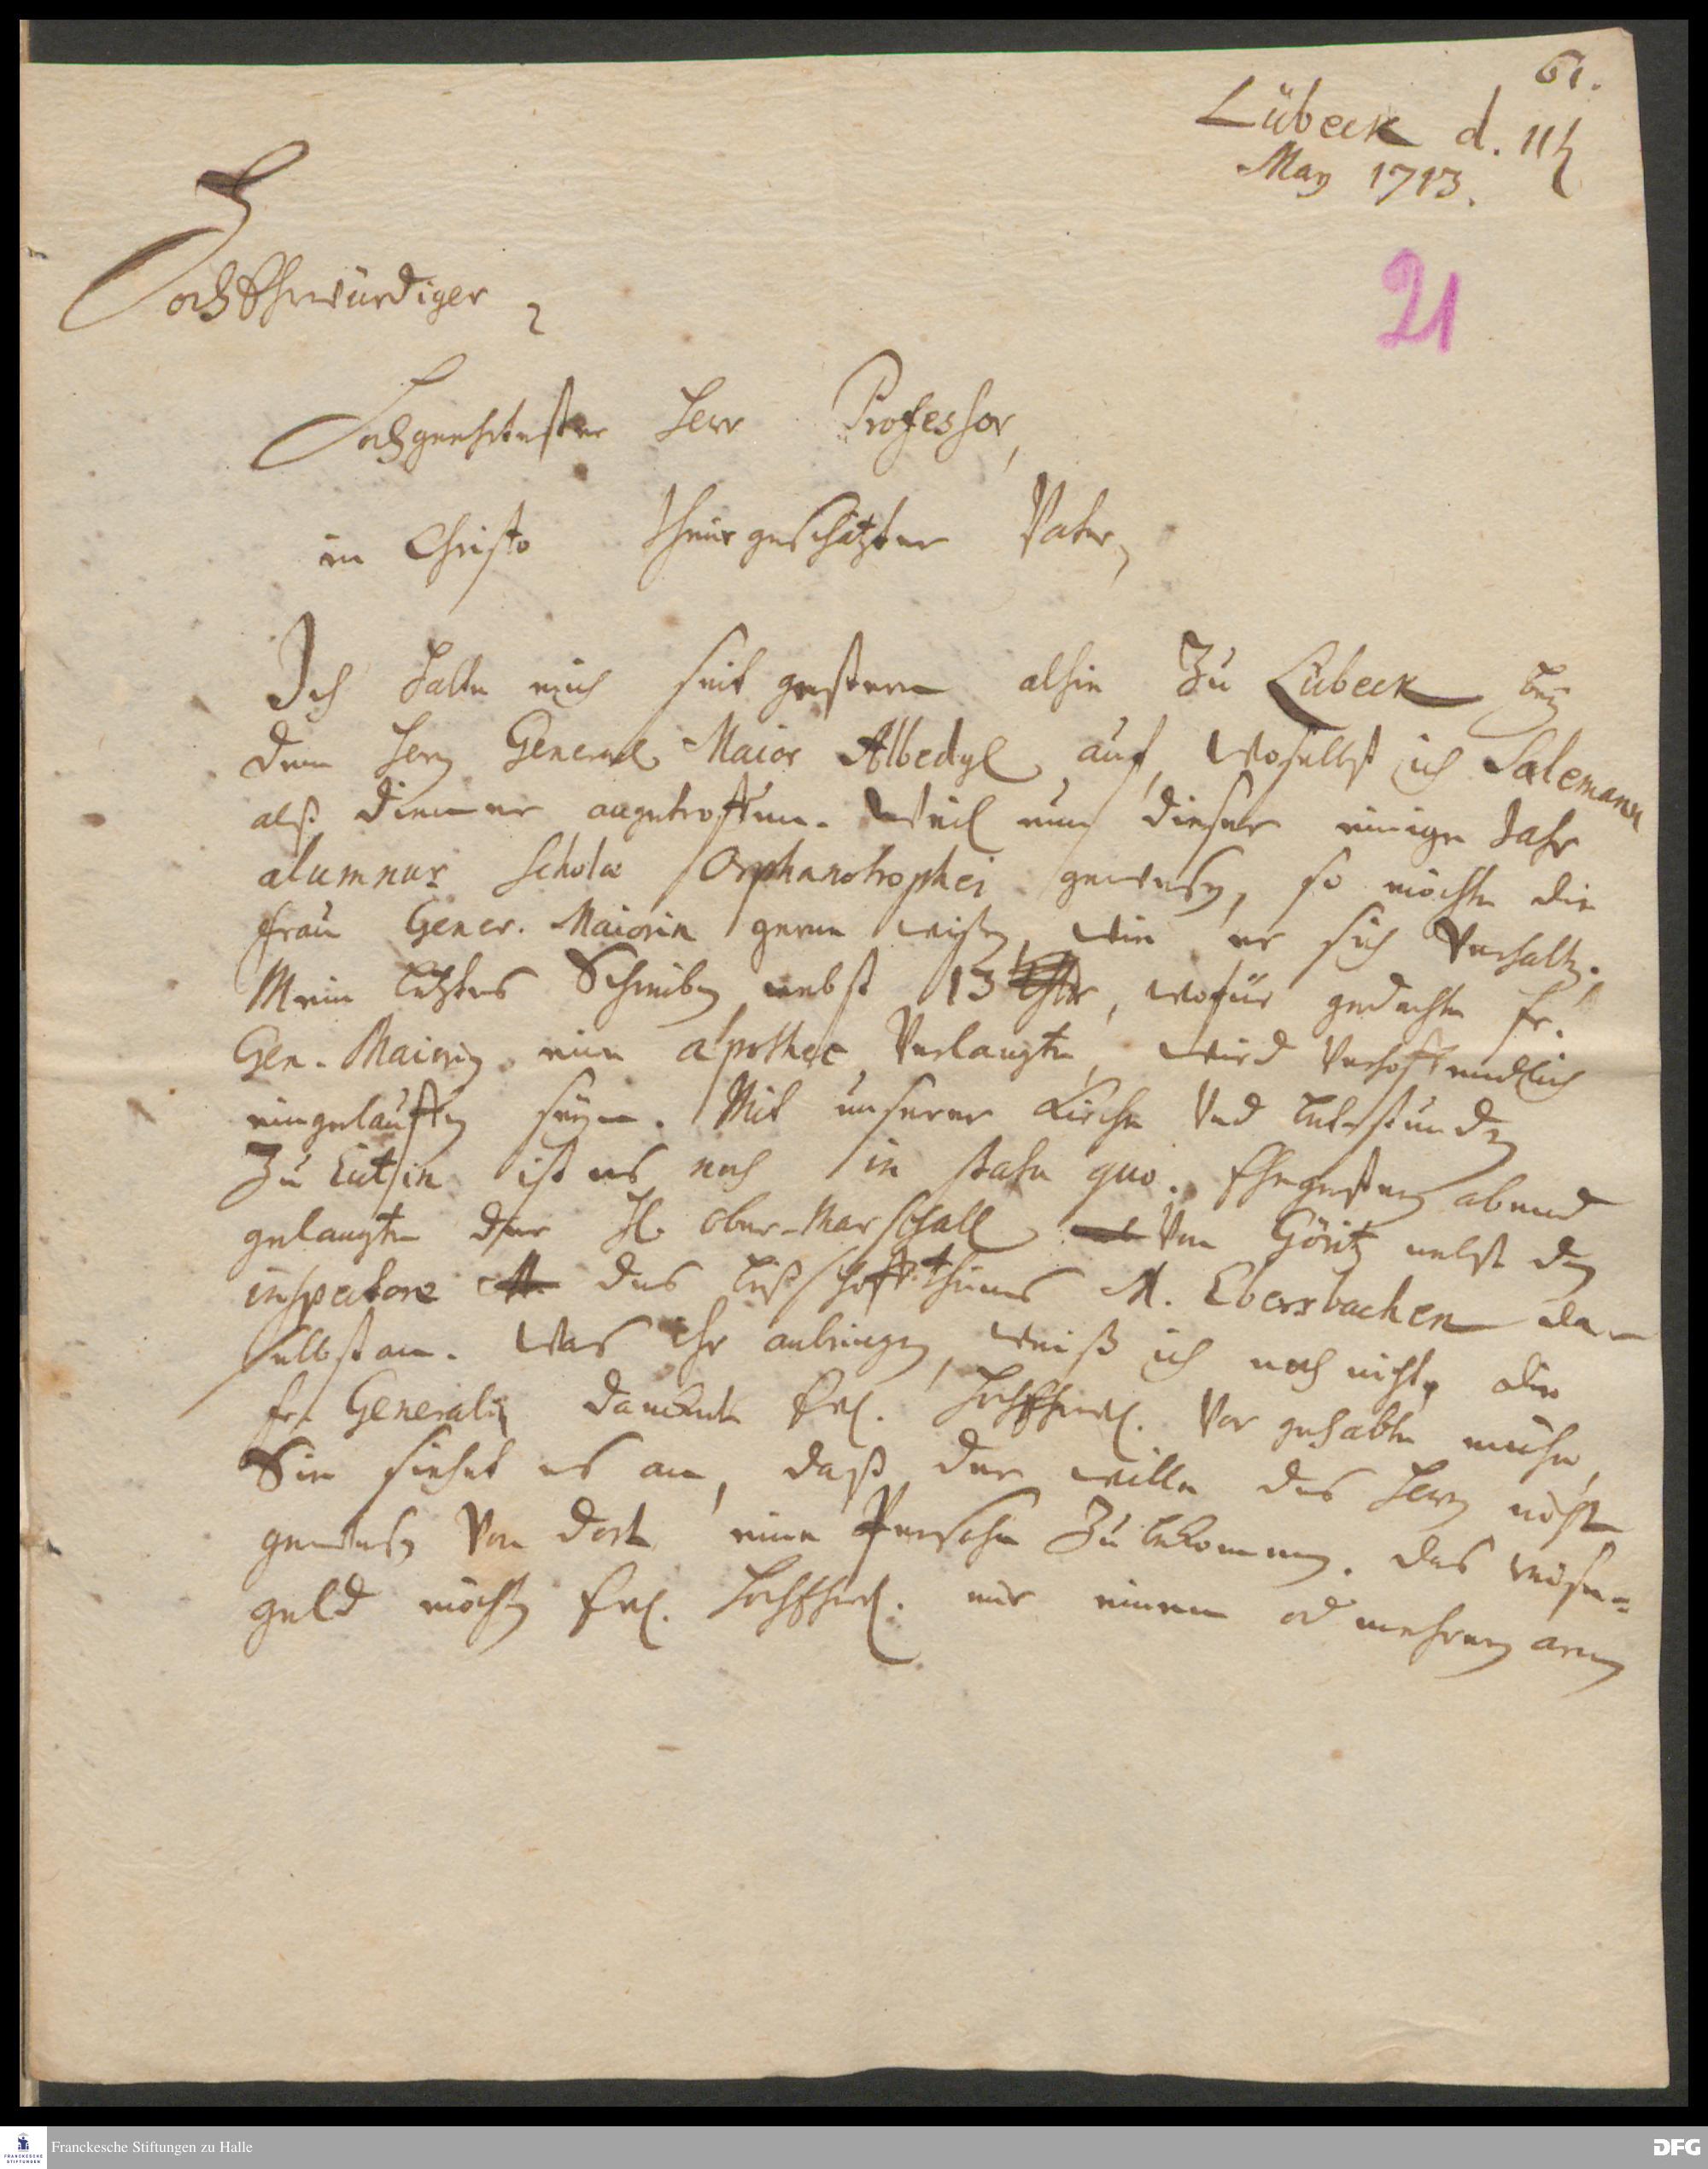 61.
Lübeck d. 11t
May 1713.
21
HochEhrwürdiger,
Hochgeehrtester Herr Professor,
in Christo theür geschätzter Vater,
Ich halte mich seit gestern alhie zu Lübeck bey
dem Herrn General Maior Albedyl auf, woselbst ich Salemann
alß diener angetroffen. Weil nun dieser einige Jahr
alumnus Scholæ Orphanotrophei gewesen, so möchte die
frau Gener. Maiorin gerne wißen, wie er sich verhalten.
Mein letztes Schreiben nebst 13 thlr, wofür gedachte fr.
Gen. Maiorin eine apothec verlangte, wird verhoffendlich
eingelauffen seyn. Mit unserer Kirche und betstunden
zu Eutin ist es noch in statu quo. Ehegestern abend
gelangte der H. ober-Marschall von Görtz nebst den
inspectore des bißschoffthums M. Ebersbachen da-
selbst an. Was ihr anbringen, weiß ich noch nicht, die
fr. Generalin dancket Ew. HochEhrw. vor gehabte mühe,
Sie siehet es an, daß der wille des Herrn nicht
gewesen von dort eine Persohn zu bekommen. das reise-
geld möchten Ew. HochEhrw. nur einem od mehren armen
Franckesche Stiftungen zu Halle
FRANCKESCHE STIFTUNGEN
DFG